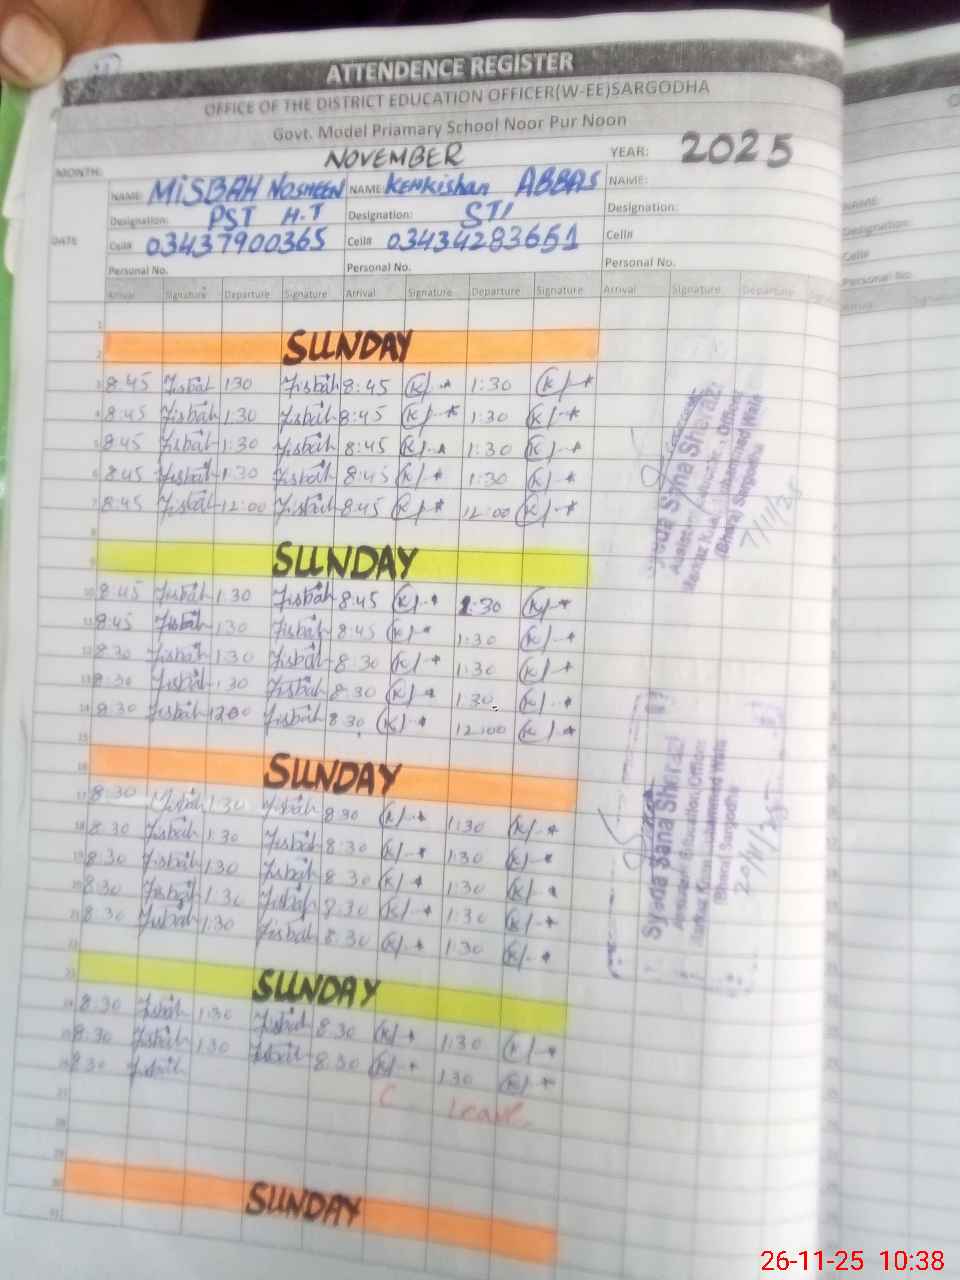 ATTENDENCE REGISTER
OFFICE OF THE DISTRICT EDUCATION OFFICER(W-EE)SARGODHA
Govt. Model Priamary School Noor Pur Noon
MONTH: NOVEMBER YEAR: 2025
NAME: MISBAH NOSHEEN NAME: Kehkishan ABBAS NAME:
Designation: PST H.T Designation: STI Designation:
DATE Cell# 03437900365 Cell# 03434283651 Cell#
Personal No. Personal No. Personal No.
Arrival Signature Departure Signature Arrival Signature Departure Signature Arrival Signature Departure
1
2 SUNDAY
3 8:45 Misbah 1:30 Misbah 8:45 K 1:30 K
4 8:45 Misbah 1:30 Misbah 8:45 K 1:30 K
5 8:45 Misbah 1:30 Misbah 8:45 K 1:30 K
6 8:45 Misbah 1:30 Misbah 8:45 K 1:30 K
7 8:45 Misbah 12:00 Misbah 8:45 K 12:00 K
8
9 SUNDAY
10 8:45 Misbah 1:30 Misbah 8:45 K 1:30 K
11 8:45 Misbah 1:30 Misbah 8:45 K 1:30 K
12 8:30 Misbah 1:30 Misbah 8:30 K 1:30 K
13 8:30 Misbah 1:30 Misbah 8:30 K 1:30 K
14 8:30 Misbah 12:00 Misbah 8:30 K 12:00 K
15
16 SUNDAY
17 8:30 Misbah 1:30 Misbah 8:30 K 1:30 K
18 8:30 Misbah 1:30 Misbah 8:30 K 1:30 K
19 8:30 Misbah 1:30 Misbah 8:30 K 1:30 K
20 8:30 Misbah 1:30 Misbah 8:30 K 1:30 K
21 8:30 Misbah 1:30 Misbah 8:30 K 1:30 K
22
23 SUNDAY
24 8:30 Misbah 1:30 Misbah 8:30 K 1:30 K
25 8:30 Misbah 1:30 Misbah 8:30 K 1:30 K
26 8:30 Misbah C leave
27
28
29
30 SUNDAY
31
Syeda Sana Sherazi
Bharat Sargodha
7/11/25
Syeda Sana Sherazi
Assistant Education Officer
Bharat Sargodha
20/11/25
26-11-25 10:38